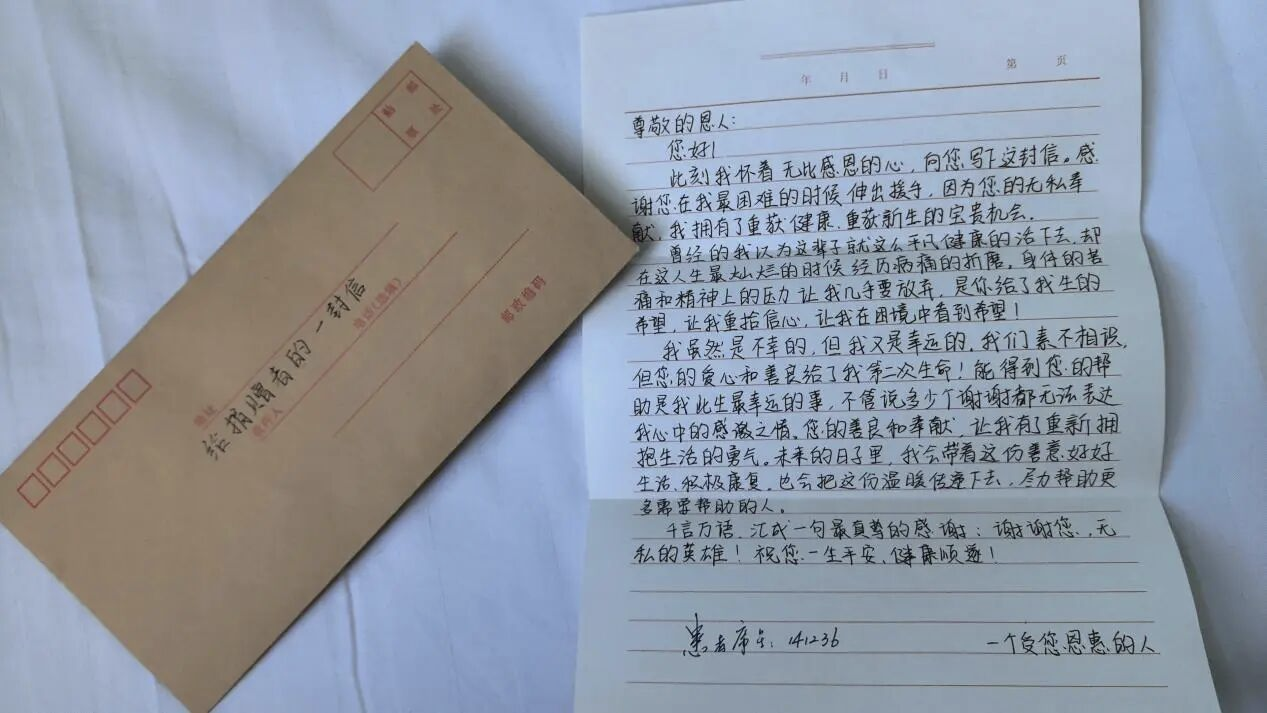 贴 邮
票 处
给捐赠者的一封信
邮政编码
年 月 日
第 页
尊敬的恩人:
您好!
此刻我怀着无比感恩的心,向您写下这封信。感
谢您在我最困难的时候伸出援手,因为您的无私奉
献,我拥有了重获健康、重获新生的宝贵机会。
曾经的我以为这辈子就这么平凡健康的活下去,却
在这人生最灿烂的时候经历病痛的折磨,身体的苦
痛和精神上的压力让我几乎要放弃,是你给了我生的
希望,让我重拾信心,让我在困境中看到希望!
我虽然是不幸的,但我又是幸运的,我们素不相识,
但您的爱心和善良给了我第二次生命!能得到您的帮
助是我此生最幸运的事,不管说多少个谢谢都无法表达
我心中的感激之情。您的善良和奉献,让我有了重新拥
抱生活的勇气。未来的日子里,我会带着这份善意好好
生活、积极康复,也会把这份温暖传递下去,尽力帮助更
多需要帮助的人。
千言万语,汇成一句最真挚的感谢:谢谢您,无
私的英雄!祝您一生平安、健康顺遂!
患者序号:141236
一个受您恩惠的人